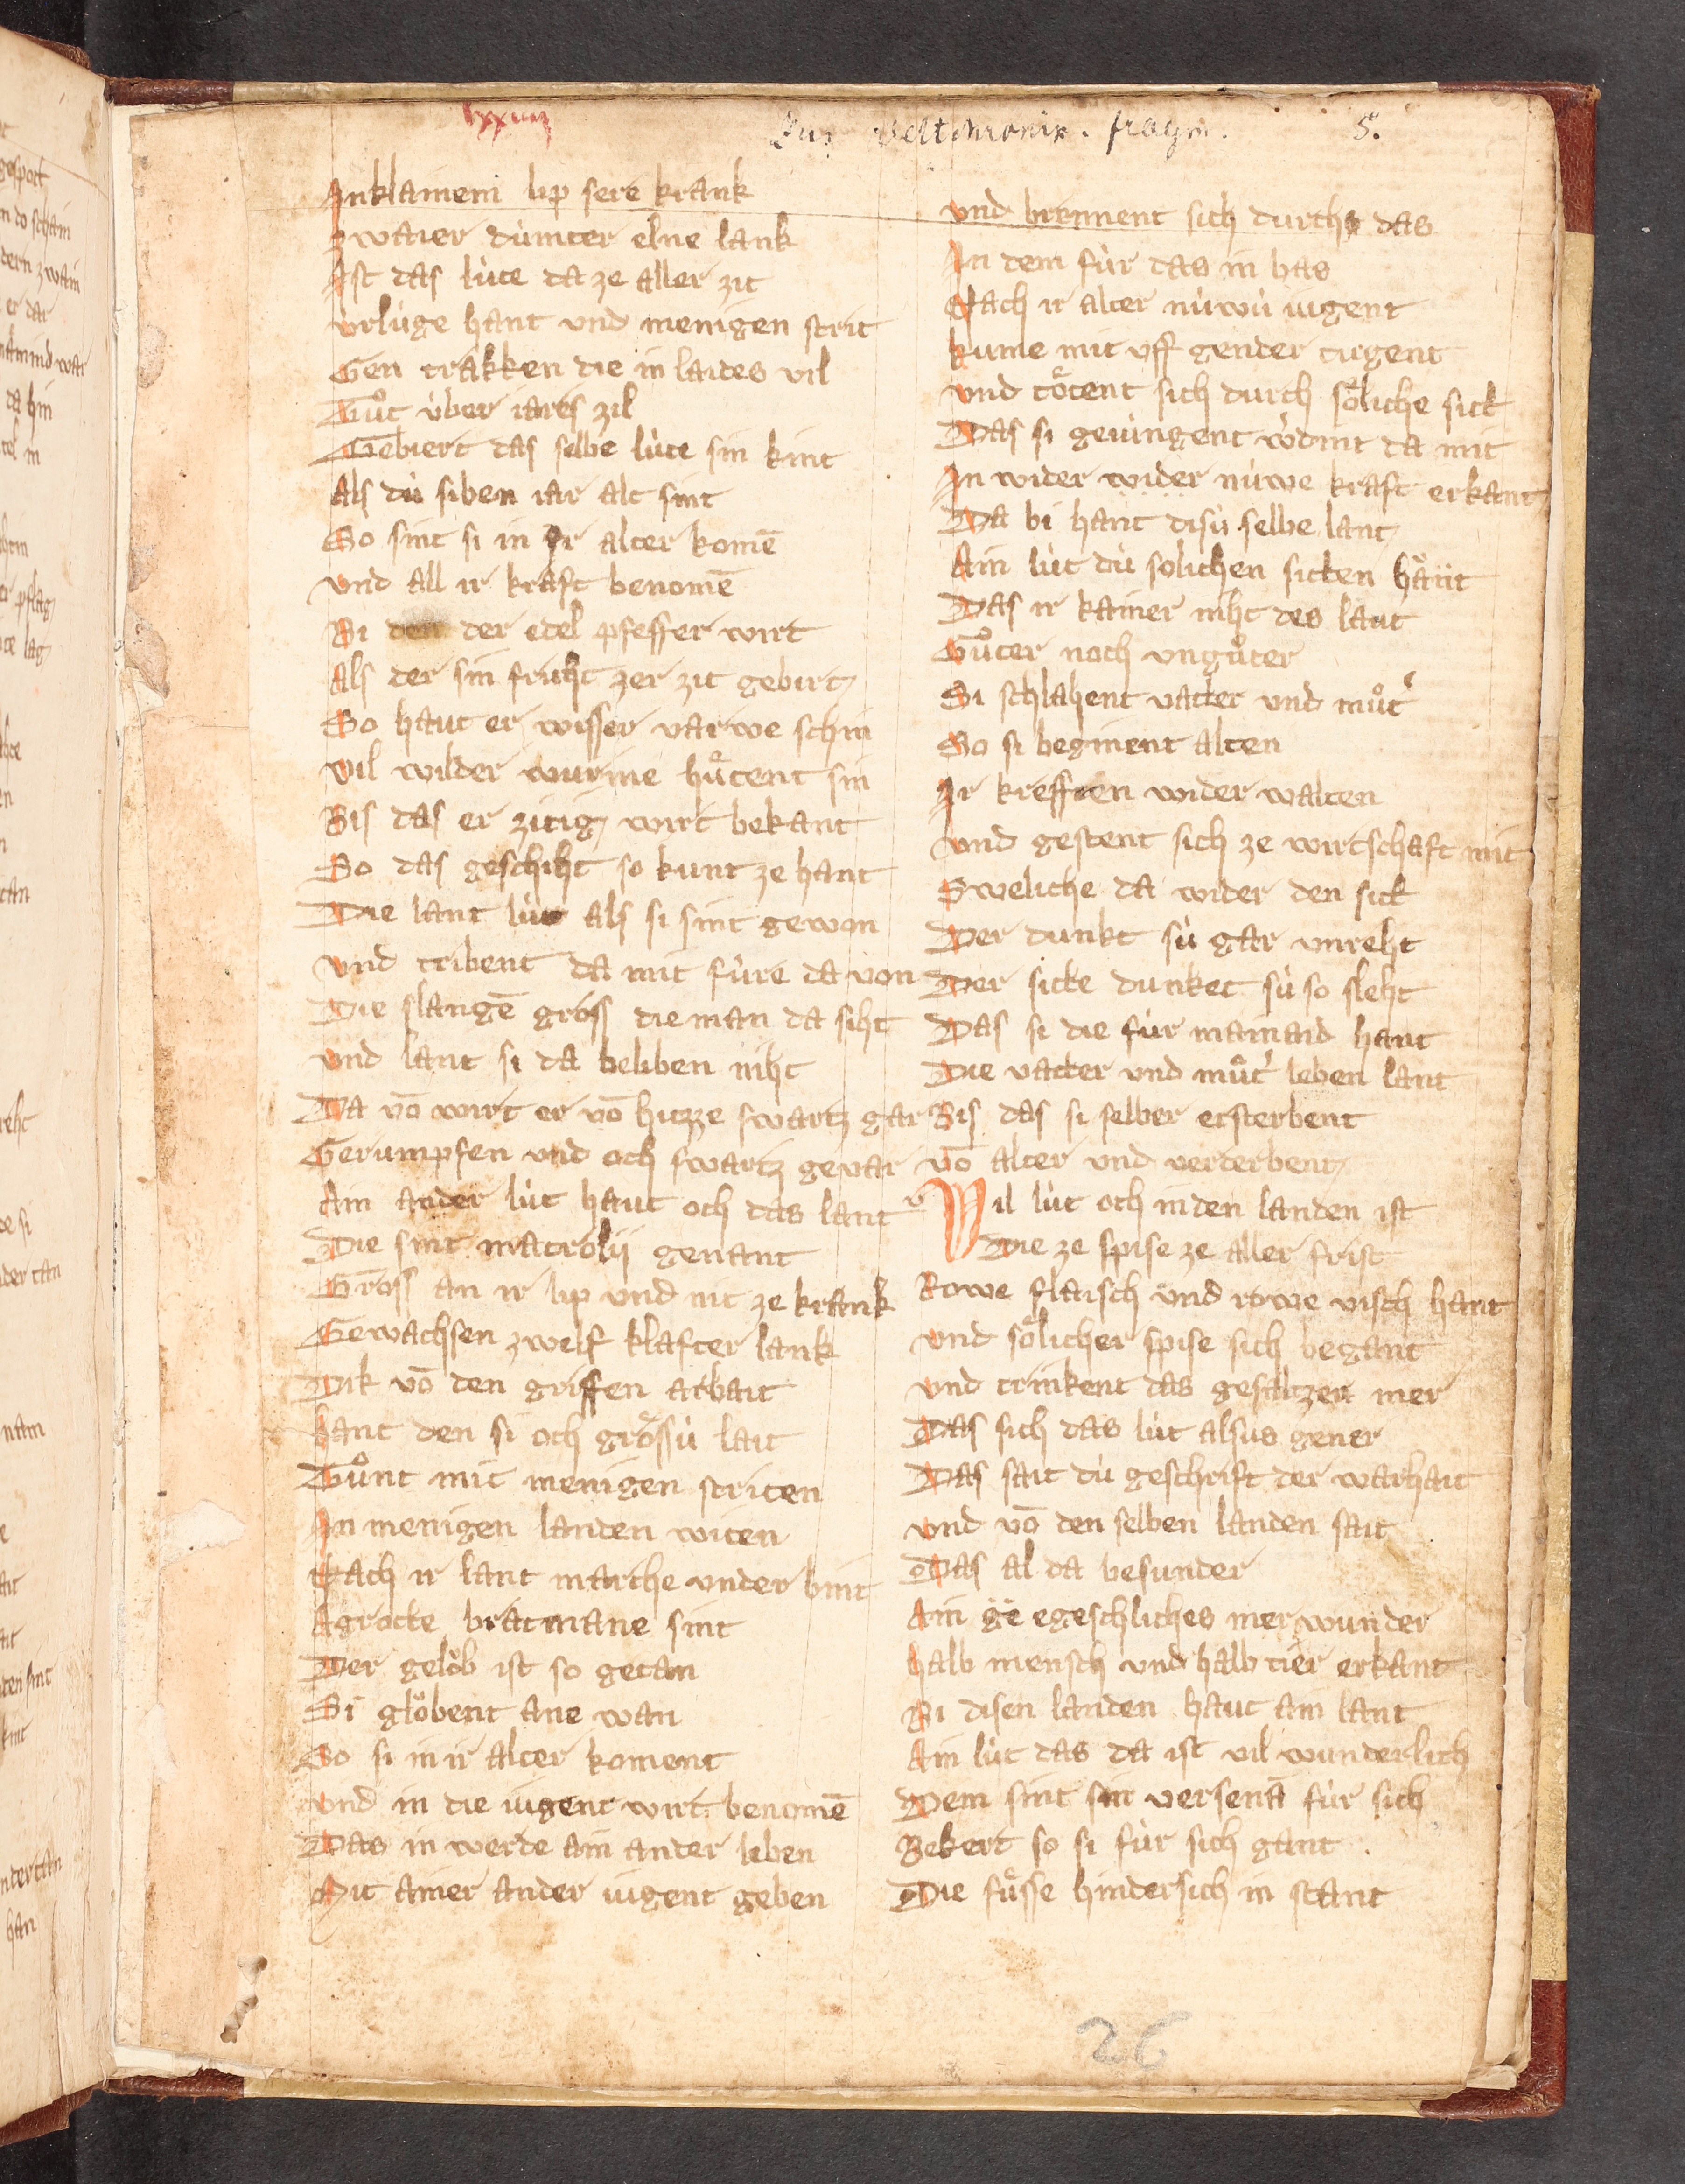 lxxiiij
Aus Weltchronik. fragm. 5.
Jnklainem lip sere krank
Zwaier dúmter elne lank
Jst das lúte da ze aller zit
vrlúge hant vnd menigen strit
Gen trakken die in laides vil
Tuͦt úber iares zil
Gebiert das selbe lúte sin kint
Als dú siben iar alt sint
So sint si in ir alter komē
vnd all ir kraft benomē
Bi der edel pfeffer wirt
Als der sin fruht zer zit gebirt
So haut er wisser varwe schin
vil wilder wurme huͤtent sin
Bis das er zitig wirt bekant
So das geschiht so kunt ze hant
Die lant lút als si sint gewon
vnd tribent da mit fúre da von
Die slangē gross die man da siht
vnd lant si da beliben niht
Da vō wirt er vō hizze swartz gar
Gerumpfen vnd och swartz gevar
Ain ander lút haut och das lant
Die sint macrolij genant
Gross an ir lip vnd nit ze krank
Gewachsen zwelf klafter lank
Dik vō den griffen arbait
hant den si och groͤssú lait
Tuͦnt mit menigen striten
Jn menigen landen witen
Nach ir lant marche vnder bint
Agrocte bracmane sint
Der geloͮb ist so getan
Si gloͮbent ane wan
So si in ir alter koment
vnd in die iugent wirt benomē
Das in werde ain ander leben
Mit ainer ander iugent geben
vnd brennent sich durch das
Jn dem fúr das in bas
Nach ir alter núwú iugent
kume mit vff gender tugent
vnd toͤtent sich durch soͤliche sick
Das si geiungent da mit
Jn wider wider núwe kraft erkant
Da bi hant disú selbe lant
Ain lút dú solichen sitten haͤut
Das ir kainer niht des laut
Guͦter noch vnguͦter
Si schlahent vatter vnd muͦt'
So si beginent alten
Jr kreffren wider walten
vnd gestent sich ze wirtschaft mit
Sweliche da wider den sick
Der dunkt sú gar vnreht
Der sitte dunket sú so sleht
Das si die fúr mainaid hant
Die vatter vnd muͦt' leben lant
Bis das si selber ersterbent
vō alter vnd verderbent
v
Vil lút och in den landen ist
Die ze spise ze aller frist
Rowe flaisch vnd rowe visch hant
vnd soͤlicher spise sich begant
vnd trinkent das gesaltzen mer
Das sich das lút alsus gener
Das sait dú geschrift der warhait
vnd vō den selben landen sait
Das al da besunder
Ain ge egeschliches mer wunder
halb mensch vnd halb tier erkant
Bi disen landen haut ain lant
Ain lút das da ist vil wunderlich
Dem sint sin versenā fúr sich
Bekert so si fúr sich gant
Die fuͤsse hindersich in stant
26